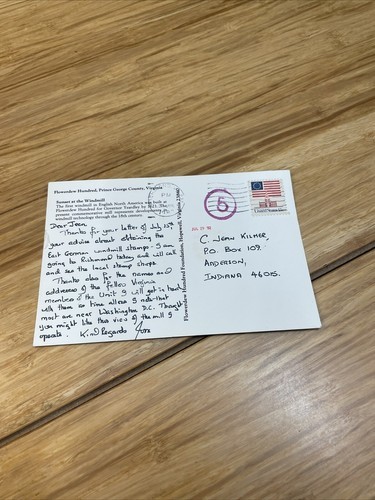 Flowerdew Hundred, Prince George County, Virginia
Sunset at the Windmill
The first windmill in English North America was built at
Flowerdew Hundred for Governor Yeardley by 1621. The
present commemorative mill represents developments in
windmill technology through the 18th century.
Dear Jean
Thanks for your letter of July 25th
your advice about obtaining the
East German windmill stamps. I am
going to Richmond today and will call
and see the local stamp shops
Thanks also for the names and
addresses of the fellow Virginia
members of the Unit I will get in touch
with them as time allows I note that
most are near Washington D.C. Thought
you might like this view of the mill I
operate. Kind Regards
Flowerdew Hundred Foundation, Hopewell, Virginia 23860
5
AUG 29
C. JEAN KILMER,
P.O. BOX 109.
ANDERSON,
INDIANA 46015.